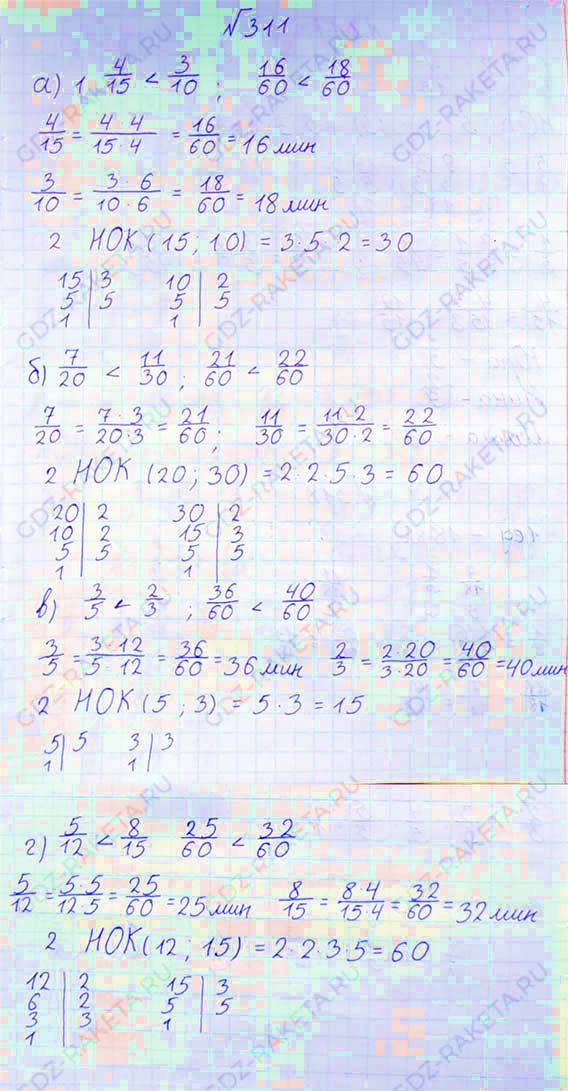 №311
а) 1 4/15 < 3/10 ; 16/60 < 18/60
4/15 = 4 4/15·4 = 16/60 = 16 мин
3/10 = 3·6/10·6 = 18/60 = 18 мин
2 НОК (15; 10) = 3·5·2 = 30
15 | 3 10 | 2
5 | 5 5 | 5
1 | 1 |
б) 7/20 < 11/30 ; 21/60 < 22/60
7/20 = 7·3/20·3 = 21/60 ; 11/30 = 11·2/30·2 = 22/60
2 НОК (20; 30) = 2·2·5·3 = 60
20 | 2 30 | 2
10 | 2 15 | 3
5 | 5 5 | 5
1 | 1 |
в) 3/5 < 2/3 ; 36/60 < 40/60
3/5 = 3·12/5·12 = 36/60 = 36 мин 2/3 = 2·20/3·20 = 40/60 = 40 мин
2 НОК (5; 3) = 5·3 = 15
5 | 5 3 | 3
1 | 1 |
г) 5/12 < 8/15 25/60 < 32/60
5/12 = 5·5/12·5 = 25/60 = 25 мин 8/15 = 8·4/15·4 = 32/60 = 32 мин
2 НОК (12; 15) = 2·2·3·5 = 60
12 | 2 15 | 3
6 | 2 5 | 5
3 | 3 1 |
1 |
GDZ-RAKETA.RU